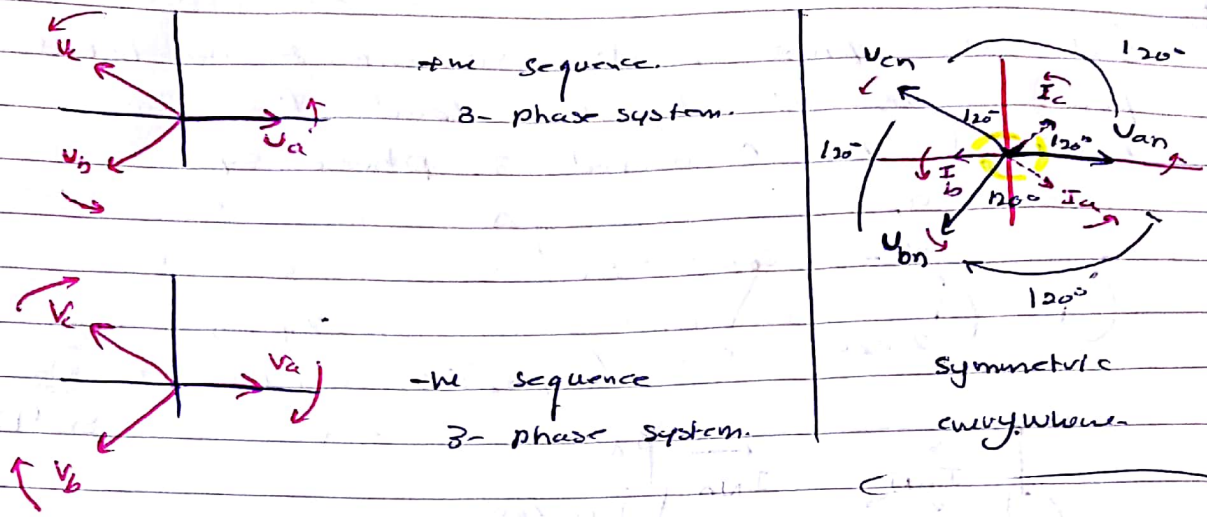 Vc
+ve sequence.
3- phase system.
Va
Vb
Vc
Va
-ve sequence
3- phase system.
Vb
Vcn
120°
Ic
120°
120°
Van
120°
Ib
120°
Ia
Vbn
120°
Symmetric
everywhere